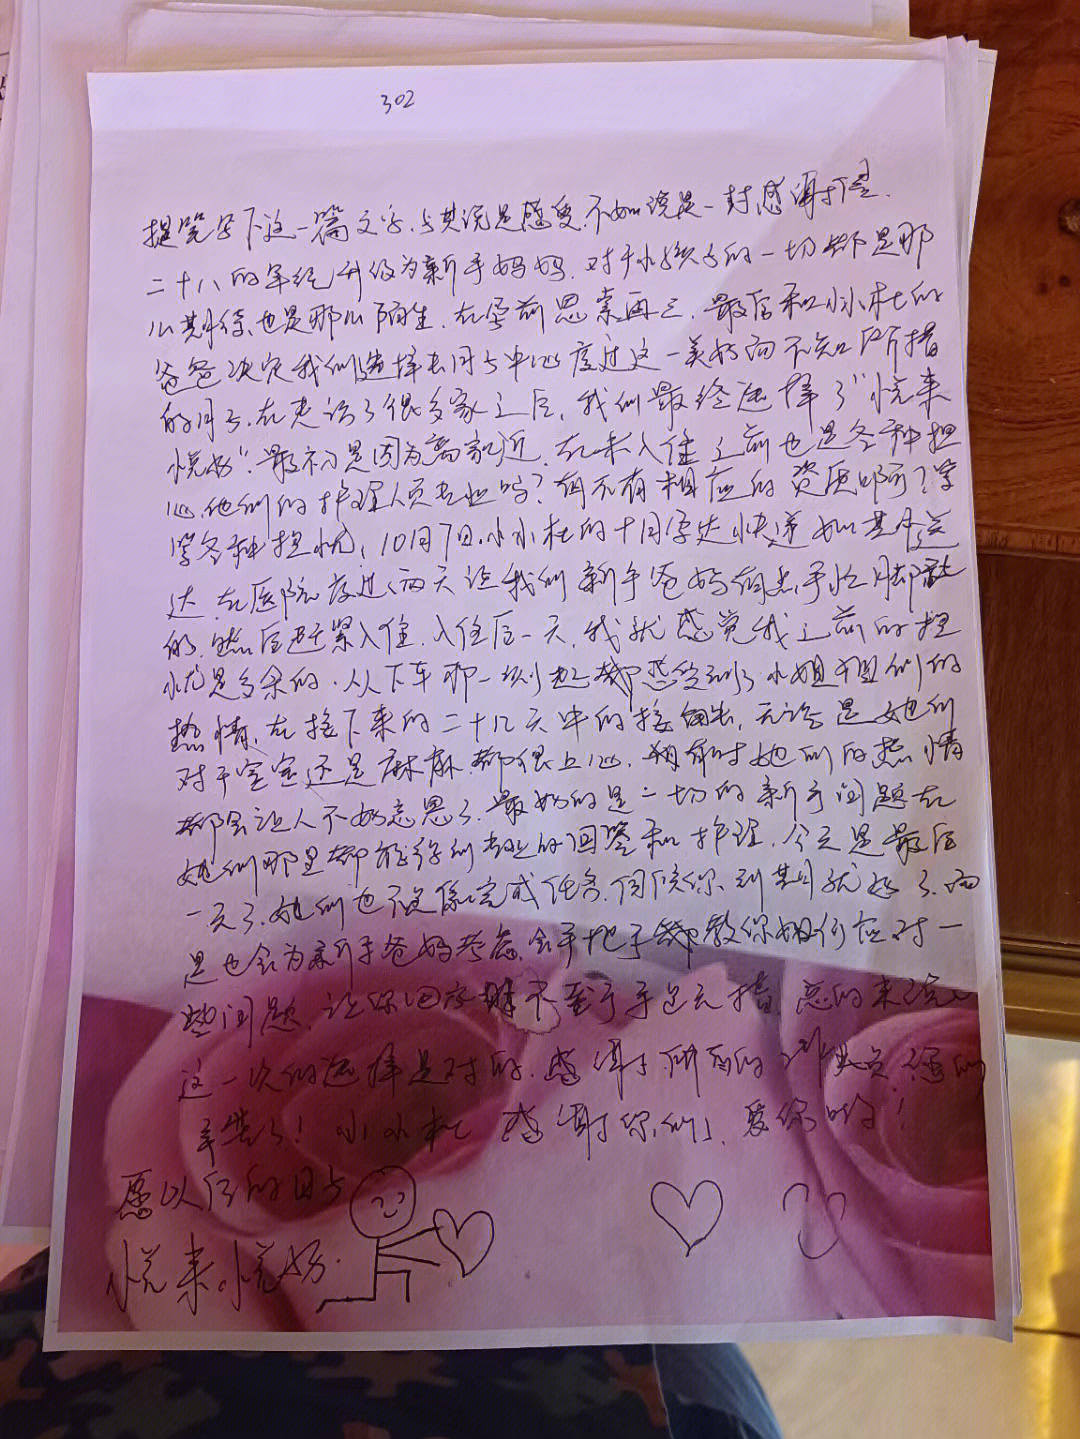 302
提笔写下这一篇文字,与其说是感受,不如说是一封感谢信.
二十八的年纪升级为新手妈妈.对于小孩子的一切都是那
么期待,也是那么陌生.在孕前思索再三.最后和小小杜的
爸爸决定我们选择去月子中心度过这一美好而不知所措
的月子.在走访了很多家之后,我们最终选择了"悦来
悦好".最初是因为离家近.在未入住之前也是各种担
心.他们的护理人员专业吗?有没有相应的资质啊?等
等各种担忧,10月7日.小小杜的十月孕达快递如期送
达.在医院度过两天让我们新手爸妈有点手忙脚乱
的.然后赶紧入住.入住后一天,我就感觉我之前的担
忧是多余的.从下车那一刻起都感受到了小姐姐们的
热情.在接下来的二十几天中的接触,无论是她们
对于宝宝还是麻麻.都很上心.有时她们的热情
都会让人不好意思了.最好的是一切的新手问题在
她们那里都能得到专业的回答和护理.今天是最后
一天了.她们也不是像完成任务.伺候你到期就好了.而
是也会为新手爸妈考虑.会手把手教你如何应对一
些问题.让你回家不至于手足无措.总的来说
这一次的选择是对的.感谢所有的
辛苦了!小小杜感谢你们.爱你哟!
愿以后的日子
悦来.悦好.